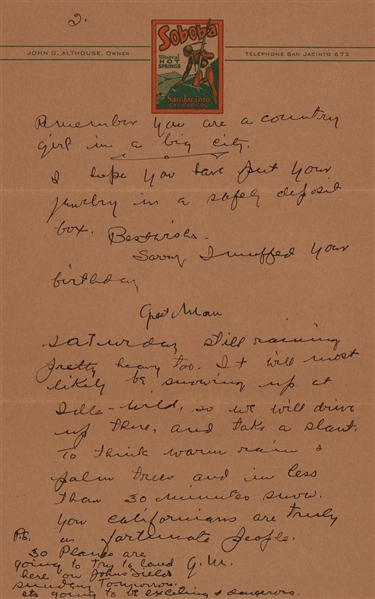 2.
JOHN G. ALTHOUSE, OWNER
Soboba
Mineral
HOT
SPRINGS
San Jacinto
CALIFORNIA
TELEPHONE SAN JACINTO 672
Remember you are a country
girl in a big city.
I hope you have put your
jewelry in a safety deposit
box. Best wishes.
Sorry I muffed your
birthday
Geo Mau
Saturday still raining
pretty heavy too. It will most
likely be snowing up at
Idle-Wild, so we will drive
up there, and take a slant.
To think warm rain &
palm trees and in less
than 30 minutes snow.
You californians are truly
fortunate people.
G.M.
P.S.
30 Planes are
going to try to land
here on Johns Fields
sunday Tomorrow.
its going to be exciting & dangerous.